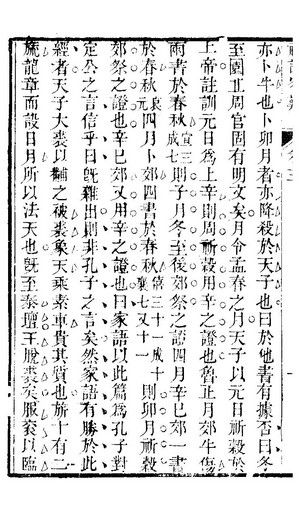 亦卜牛也卜卯月者亦降殺於天子也曰於他書有據否曰冬
至圜丘周官固有明文矣月令孟春之月天子以元日祈穀於
上帝註訓元日爲上辛則周祈穀用辛之證也魯正月郊牛傷
兩書於春秋宣三成七則子月冬至後郊祭之證四月辛巳郊一書
於春秋哀元四月卜郊四書於春秋僖三十一成十襄七又十一則卯月祈穀
郊祭之證也辛巳郊又用辛之證也家語以此篇爲孔子對
定公之言信乎曰旣雜出則非孔子之言矣然家語有勝於此
經者天子大裘以黼之被裘象天乘素車貴其質也旂十有二
旒龍章而設日月所以法天也旣至泰壇王脫裘矣服袞以臨